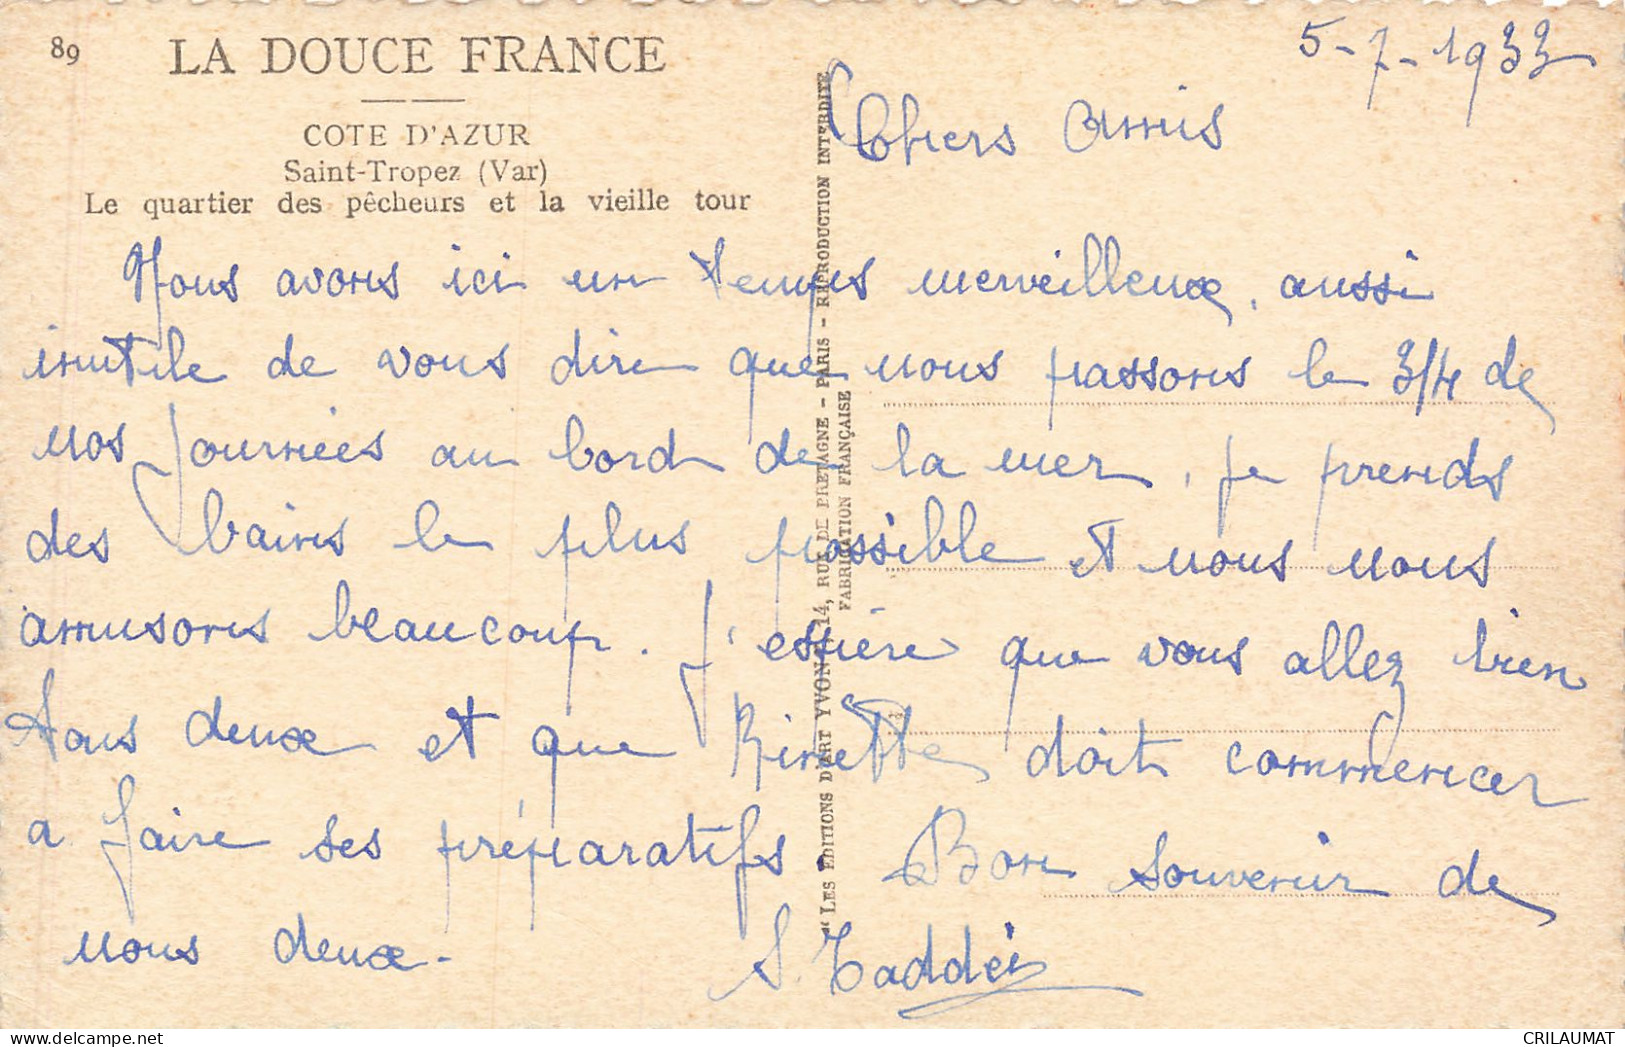 89 LA DOUCE FRANCE
COTE D'AZUR
Saint-Tropez (Var)
Le quartier des pêcheurs et la vieille tour
"LES EDITIONS D'ART YVON", 14, RUE DE BRETAGNE - PARIS - REPRODUCTION INTERDITE
FABRICATION FRANÇAISE
5-7-1933
Chers Amis
Nous avons ici un temps merveilleux, aussi
inutile de vous dire que nous passons le 3/4 de
nos journées au bord de la mer, je prends
des bains le plus possible et nous nous
amusons beaucoup. J'espère que vous allez bien
tous deux et que Rinette doit commencer
a faire ses préparatifs. Bon souvenir de
nous deux -
S. Taddéi
CRILAUMAT